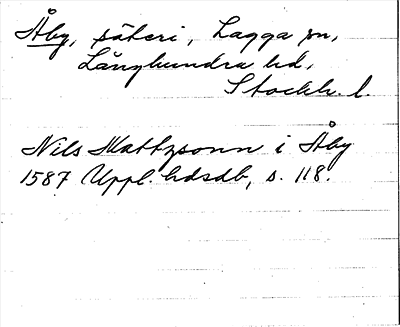 Åby, säteri, Lagga sn,
Långhundra hd,
Stockh. l.
Nils Mattzsonn i Åby
1587 Uppl. hdsdb, s. 118.